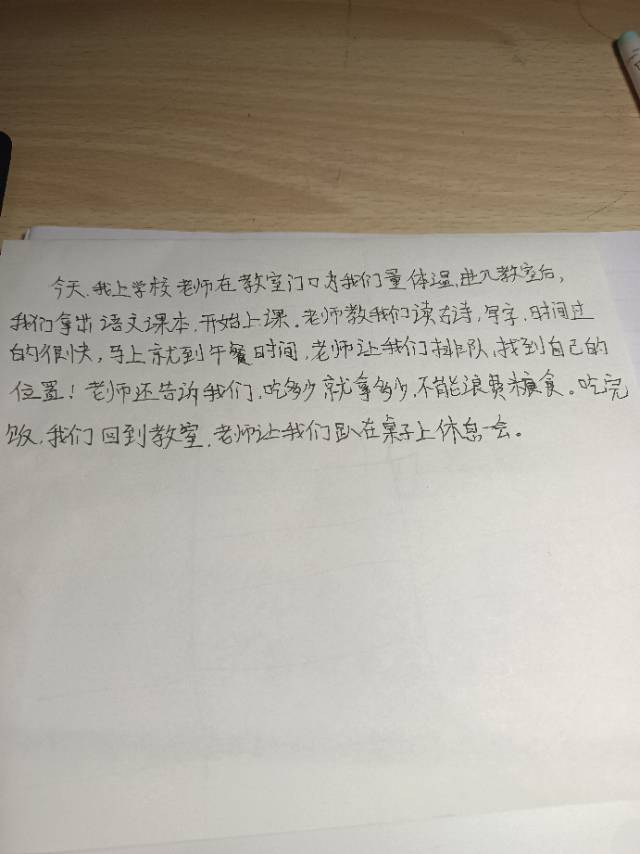 今天,我上学校老师在教室门口为我们量体温,进入教室后,
我们拿出语文课本,开始上课。老师教我们读古诗,写字,时间过
的很快,马上就到午餐时间,老师让我们排队,找到自己的
位置!老师还告诉我们,吃多少就拿多少,不能浪费粮食。吃完
饭,我们回到教室,老师让我们趴在桌子上休息一会。